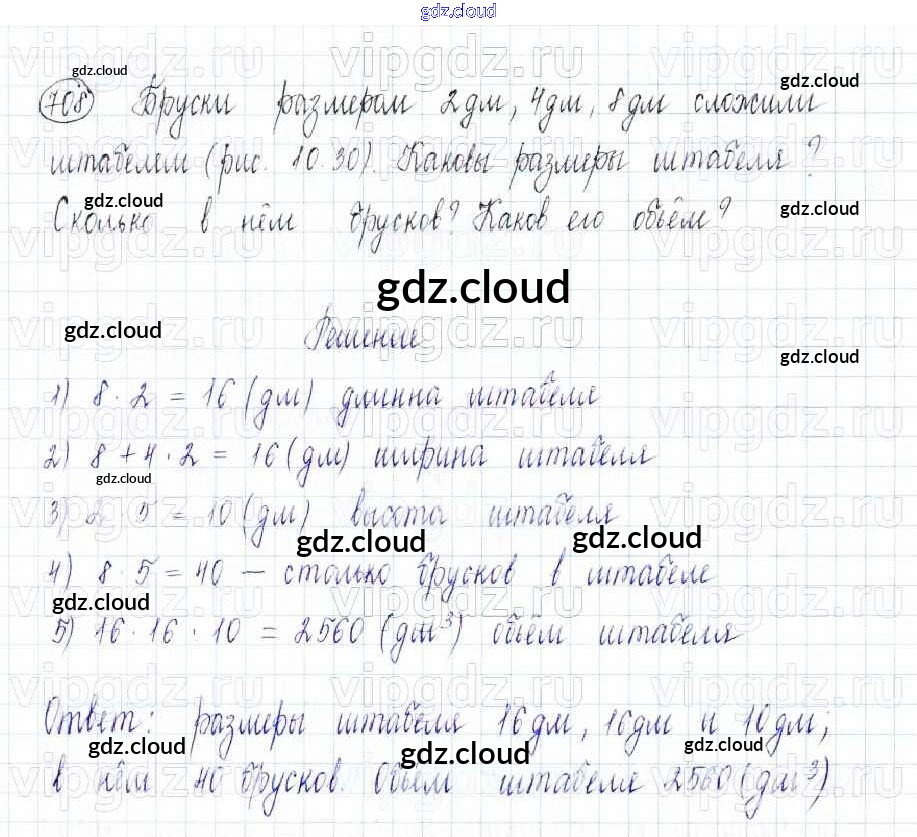 gdz.cloud
gdz.cloud
708 Бруски размером 2дм, 4дм, 8дм сложили
gdz.cloud
штабелем (рис. 10.30). Каковы размеры штабеля?
gdz.cloud
Сколько в нём брусков? Каков его объём?
gdz.cloud
gdz.cloud
gdz.cloud
Решение
gdz.cloud
1) 8 · 2 = 16 (дм) длинна штабеля
2) 8 + 4 · 2 = 16 (дм) ширина штабеля
gdz.cloud
3) 2 · 5 = 10 (дм) высота штабеля
gdz.cloud gdz.cloud
4) 8 · 5 = 40 — столько брусков в штабеле
gdz.cloud
5) 16 · 16 · 10 = 2560 (дм³) объём штабеля
Ответ: размеры штабеля 16дм, 16дм и 10дм;
gdz.cloud gdz.cloud gdz.cloud
в нём 40 брусков. Объём штабеля 2560 (дм³)
vipgdz.ru